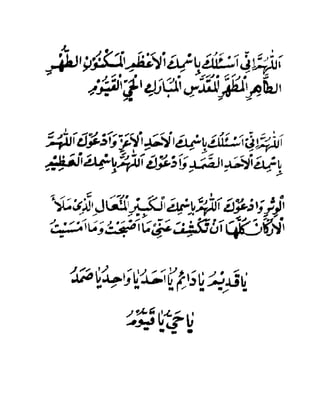 اَللّٰهُمَّ اِنِّي اَسْئَلُكَ بِاسْمِكَ الْاَعْظَمِ الْمَكْنُوْنِ الطُّهْرِ
الطَّاهِرِ الْمُطَهَّرِ الْمُقَدَّسِ الْمُبَارَكِ الْحَيِّ الْقَيُّوْمِ
اَللّٰهُمَّ اِنِّي اَسْئَلُكَ بِاسْمِكَ الْاَحَدِ الْاَعَزِّ وَاَدْعُوْكَ اللّٰهُمَّ
بِاسْمِكَ الْاَحَدِ الصَّمَدِ وَاَدْعُوْكَ اللّٰهُمَّ بِاسْمِكَ الْعَظِيْمِ
الْوِتْرِ وَاَدْعُوْكَ اللّٰهُمَّ بِاسْمِكَ الْكَبِيْرِ الْمُتَعَالِ الَّذِيْ مَلَأَ
الْاَرْكَانَ كُلَّهَا اَنْ تَكْشِفَ عَنِّيْ مَا اَصْبَحْتُ وَمَا اَمْسَيْتُ
يَا قَدِيْمُ يَا دَائِمُ يَا اَحَدُ يَا وَاحِدُ يَا صَمَدُ
يَا حَيُّ يَا قَيُّوْمُ